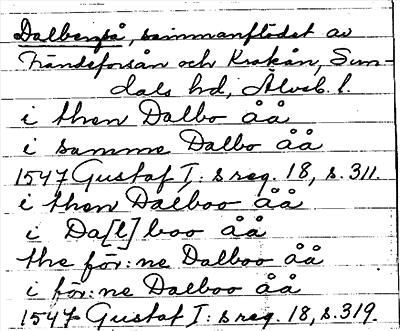 Dalbergså, sammanflödet av
Frändeforsån och Krakån, Sun-
dals hd, Älvsb. l.
i then Dalbo åå
i samme Dalbo åå
1547 Gustaf I: s reg. 18, s. 311.
i then Dalboo åå
i Da[l]boo åå
the för:ne Dalboo åå
i för:ne Dalboo åå
1547 Gustaf I: s reg. 18, s. 319.